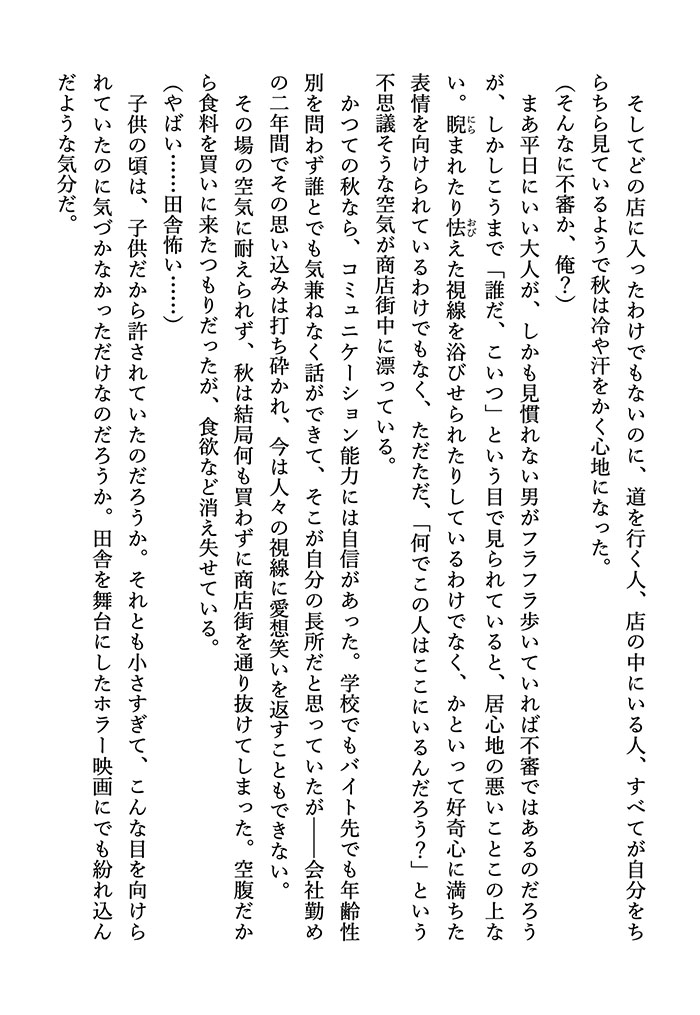 そしてどの店に入ったわけでもないのに、道を行く人、店の中にいる人、すべてが自分をち
らちら見ているようで秋は冷や汗をかく心地になった。
（そんなに不審か、俺？）
　まあ平日にいい大人が、しかも見慣れない男がフラフラ歩いていれば不審ではあるのだろう
が、しかしこうまで「誰だ、こいつ」という目で見られていると、居心地の悪いことこの上な
い。睨にらまれたり怯おびえた視線を浴びせられたりしているわけでなく、かといって好奇心に満ちた
表情を向けられているわけでもなく、ただただ、「何でこの人はここにいるんだろう？」という
不思議そうな空気が商店街中に漂っている。
　かつての秋なら、コミュニケーション能力には自信があった。学校でもバイト先でも年齢性
別を問わず誰とでも気兼ねなく話ができて、そこが自分の長所だと思っていたが――会社勤め
の二年間でその思い込みは打ち砕かれ、今は人々の視線に愛想笑いを返すこともできない。
　その場の空気に耐えられず、秋は結局何も買わずに商店街を通り抜けてしまった。空腹だか
ら食料を買いに来たつもりだったが、食欲など消え失せている。
（やばい……田舎怖い……）
　子供の頃は、子供だから許されていたのだろうか。それとも小さすぎて、こんな目を向けら
れていたのに気づかなかっただけなのだろうか。田舎を舞台にしたホラー映画にでも紛れ込ん
だような気分だ。